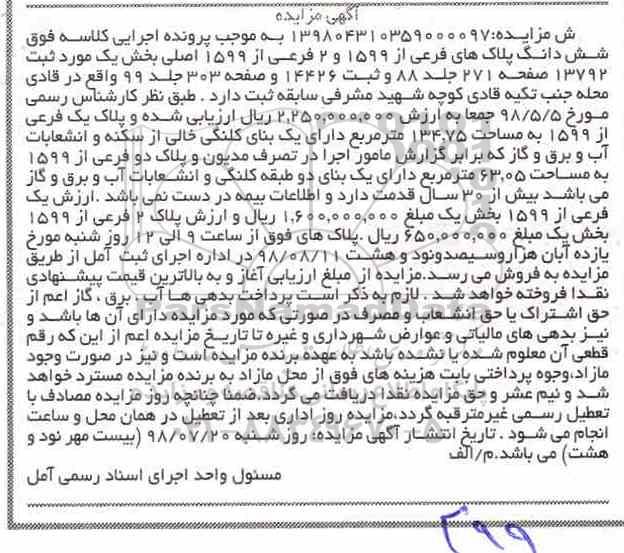 آگهی مزایده
ش مزایده:۱۳۹۸۰۴۳۱۰۳۵۹۰۰۰۰۹۷ به موجب پرونده اجرایی کلاسه فوق
شش دانگ پلاک های فرعی از ۱۵۹۹ و ۲ فرعی از ۱۵۹۹ اصلی بخش یک مورد ثبت
۱۳۷۹۲ صفحه ۲۷۱ جلد ۸۸ و ثبت ۱۴۴۲۶ و صفحه ۳۰۳ جلد ۹۹ واقع در قادی
محله جنب تکیه قادی کوچه شهید مشرفی سابقه ثبت دارد . طبق نظر کارشناس رسمی
مورخ ۹۸/۵/۵ جمعا به ارزش ۲,۲۵۰,۰۰۰,۰۰۰ ریال ارزیابی شده و پلاک یک فرعی
از ۱۵۹۹ به مساحت ۱۳۴.۷۵ مترمربع دارای یک بنای کلنگی خالی از سکنه و انشعابات
آب و برق و گاز که برابر گزارش مامور اجرا در تصرف مدیون و پلاک دو فرعی از ۱۵۹۹
به مساحت ۶۳,۰۵ مترمربع دارای یک بنای دو طبقه کلنگی و انشعابات آب و برق و گاز
می باشد بیش از ۳۰ سال قدمت دارد و اطلاعات بیمه در دست نمی باشد .ارزش یک
فرعی از ۱۵۹۹ بخش یک مبلغ ۱,۶۰۰,۰۰۰,۰۰۰ ریال و ارزش پلاک ۲ فرعی از ۱۵۹۹
بخش یک مبلغ ۶۵۰,۰۰۰,۰۰۰ ریال .پلاک های فوق از ساعت ۹ الی ۱۲ روز شنبه مورخ
یازده آبان هزاروسیصدونود و هشت ۹۸/۰۸/۱۱ در اداره اجرای ثبت آمل از طریق
مزایده به فروش می رسد.مزایده از مبلغ ارزیابی آغاز و به بالاترین قیمت پیشنهادی
نقدا فروخته خواهد شد . لازم به ذکر است پرداخت بدهی ها آب ، برق ، گاز اعم از
حق اشتراک یا حق انشعاب و مصرف در صورتی که مورد مزایده دارای آن ها باشد و
نیز بدهی های مالیاتی و عوارض شهرداری و غیره تا تاریخ مزایده اعم از این که رقم
قطعی آن معلوم شده یا نشده باشد به عهده برنده مزایده است و نیز در صورت وجود
مازاد،وجوه پرداختی بابت هزینه های فوق از محل مازاد به برنده مزایده مسترد خواهد
شد و نیم عشر و حق مزایده نقدا دریافت می گردد.ضمنا چنانچه روز مزایده مصادف با
تعطیل رسمی غیرمترقبه گردد،مزایده روز اداری بعد از تعطیل در همان محل و ساعت
انجام می شود . تاریخ انتشار آگهی مزایده: روز شنبه ۹۸/۰۷/۲۰ (بیست مهر نود و
هشت) می باشد.م/الف
مسئول واحد اجرای اسناد رسمی آمل
۲۹۹